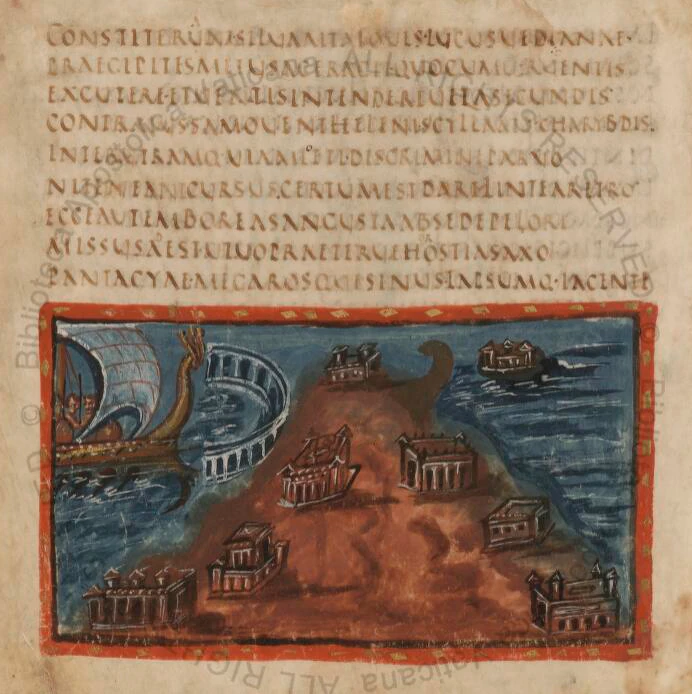 CONSTITERUNT·SILUAALTAIOUIS·LUCUSUEDIANAE·
PRAECIPITESMETUSACERAGITQUOCUMQ·RUDENTIS
EXCUTERE·ETUENTISINTENDEREUELASECUNDIS
CONTRAIUSSAMOUENTHELENISCYLLAMQ·CHARYBDIS·
INTERUTRAMQ·UIAMLETI·DISCRIMINEPARUO
NITENEANTCURSUS·CERTUMESTDARELINTEARETRO
ECCEAUTEMBOREASANGUSTAABSEDEPELORI
MISSUSADESTUIUOPRAETERUEHOROSTIASAXO
PANTAGYAE·MEGAROSQUESINUS·TAPSUMQ·IACENTE
© Biblioteca Apostolica Vaticana ALL RIGHTS RESERVED
Vaticana ALL RIG